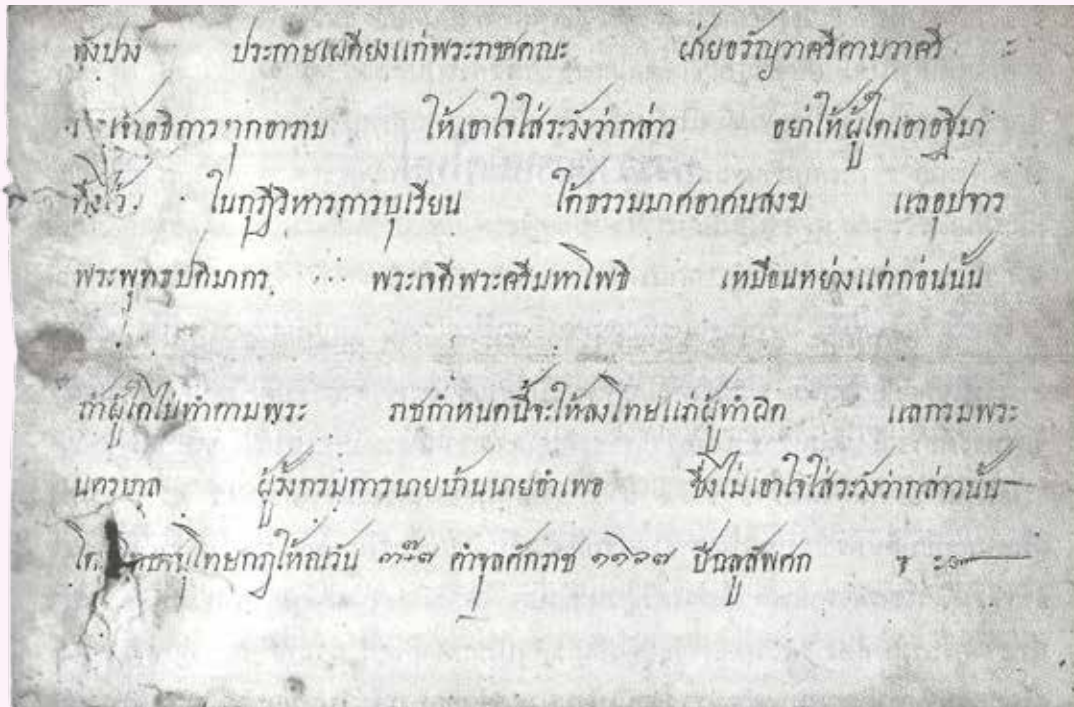 ทังปวง ประกาษเผดียงแก่พระราชคณะ ฝ่ายอรัญวาศรีคามวาศรี ะ
เจ้าอธิการทุกอาราม ให้เอาใจใส่ระวังว่ากล่าว อย่าให้ผู้ใดเอาอฐิมา
ทิ้งไว้ ในกุฎีวิหารการบุเรียน ใต้ธรรมาศอาศนสงฆ แลอุปจาร
พระพุทธปติมากร พระเจดีพระศรีมหาโพธิ เหมือนหย่างแต่ก่อนนั้น
ถ้าผู้ใดไม่ทำตามพระ ราชกำหนดนี้จะให้ลงโทษแก่ผู้ทำผิด แลกรมพระ
นครบาล ผู้รั้งกรมการนายบ้านนายอำเพอ ซึ่งไม่เอาใจใส่ระวังว่ากล่าวนั้น
โทษานุโทษกฎให้ณวัน ค่ำจุลศักราช ๑๑๖๗ ปีฉลูสัพศก